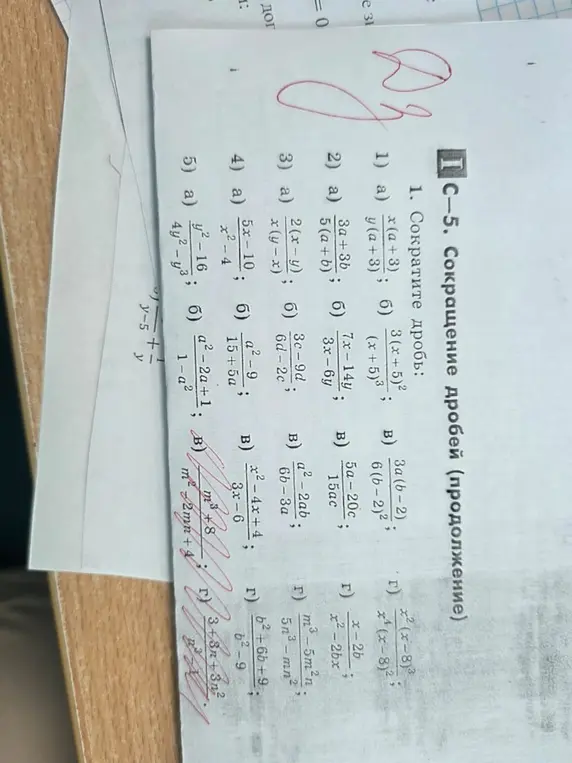 ДЗ
I С—5. Сокращение дробей (продолжение)
1. Сократите дробь:
1) а) x(a+3)/y(a+3); б) 3(x+5)²/(x+5)³; в) 3a(b−2)/6(b−2)²; г) x²(x−8)³/x⁴(x−8)²;
2) а) 3a+3b/5(a+b); б) 7x−14y/3x−6y; в) 5a−20c/15ac; г) x−2b/x²−2bx;
3) а) 2(x−y)/x(y−x); б) 3c−9d/6d−2c; в) a²−2ab/6b−3a; г) m³−5m²n/5n³−mn²;
4) а) 5x−10/x²−4; б) a²−9/15+5a; в) x²−4x+4/3x−6; г) b²+6b+9/b²−9;
5) а) y²−16/4y²−y³; б) a²−2a+1/1−a²; в) m³+8/m²−2mn+4; г) 3+3n+3n²/
+ 1/y
y−5
= 0
дог